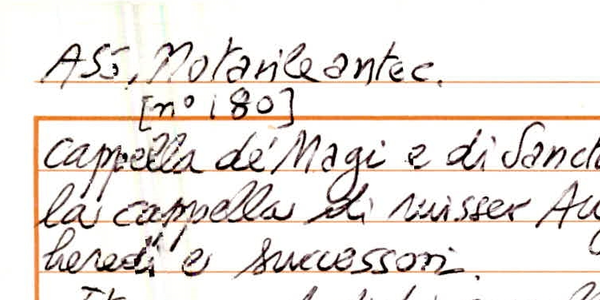 ASS, Notarile antec.
[n° 180]
Cappella de' Magi e di Sanct
la cappella di misser Au
heredi e successori.